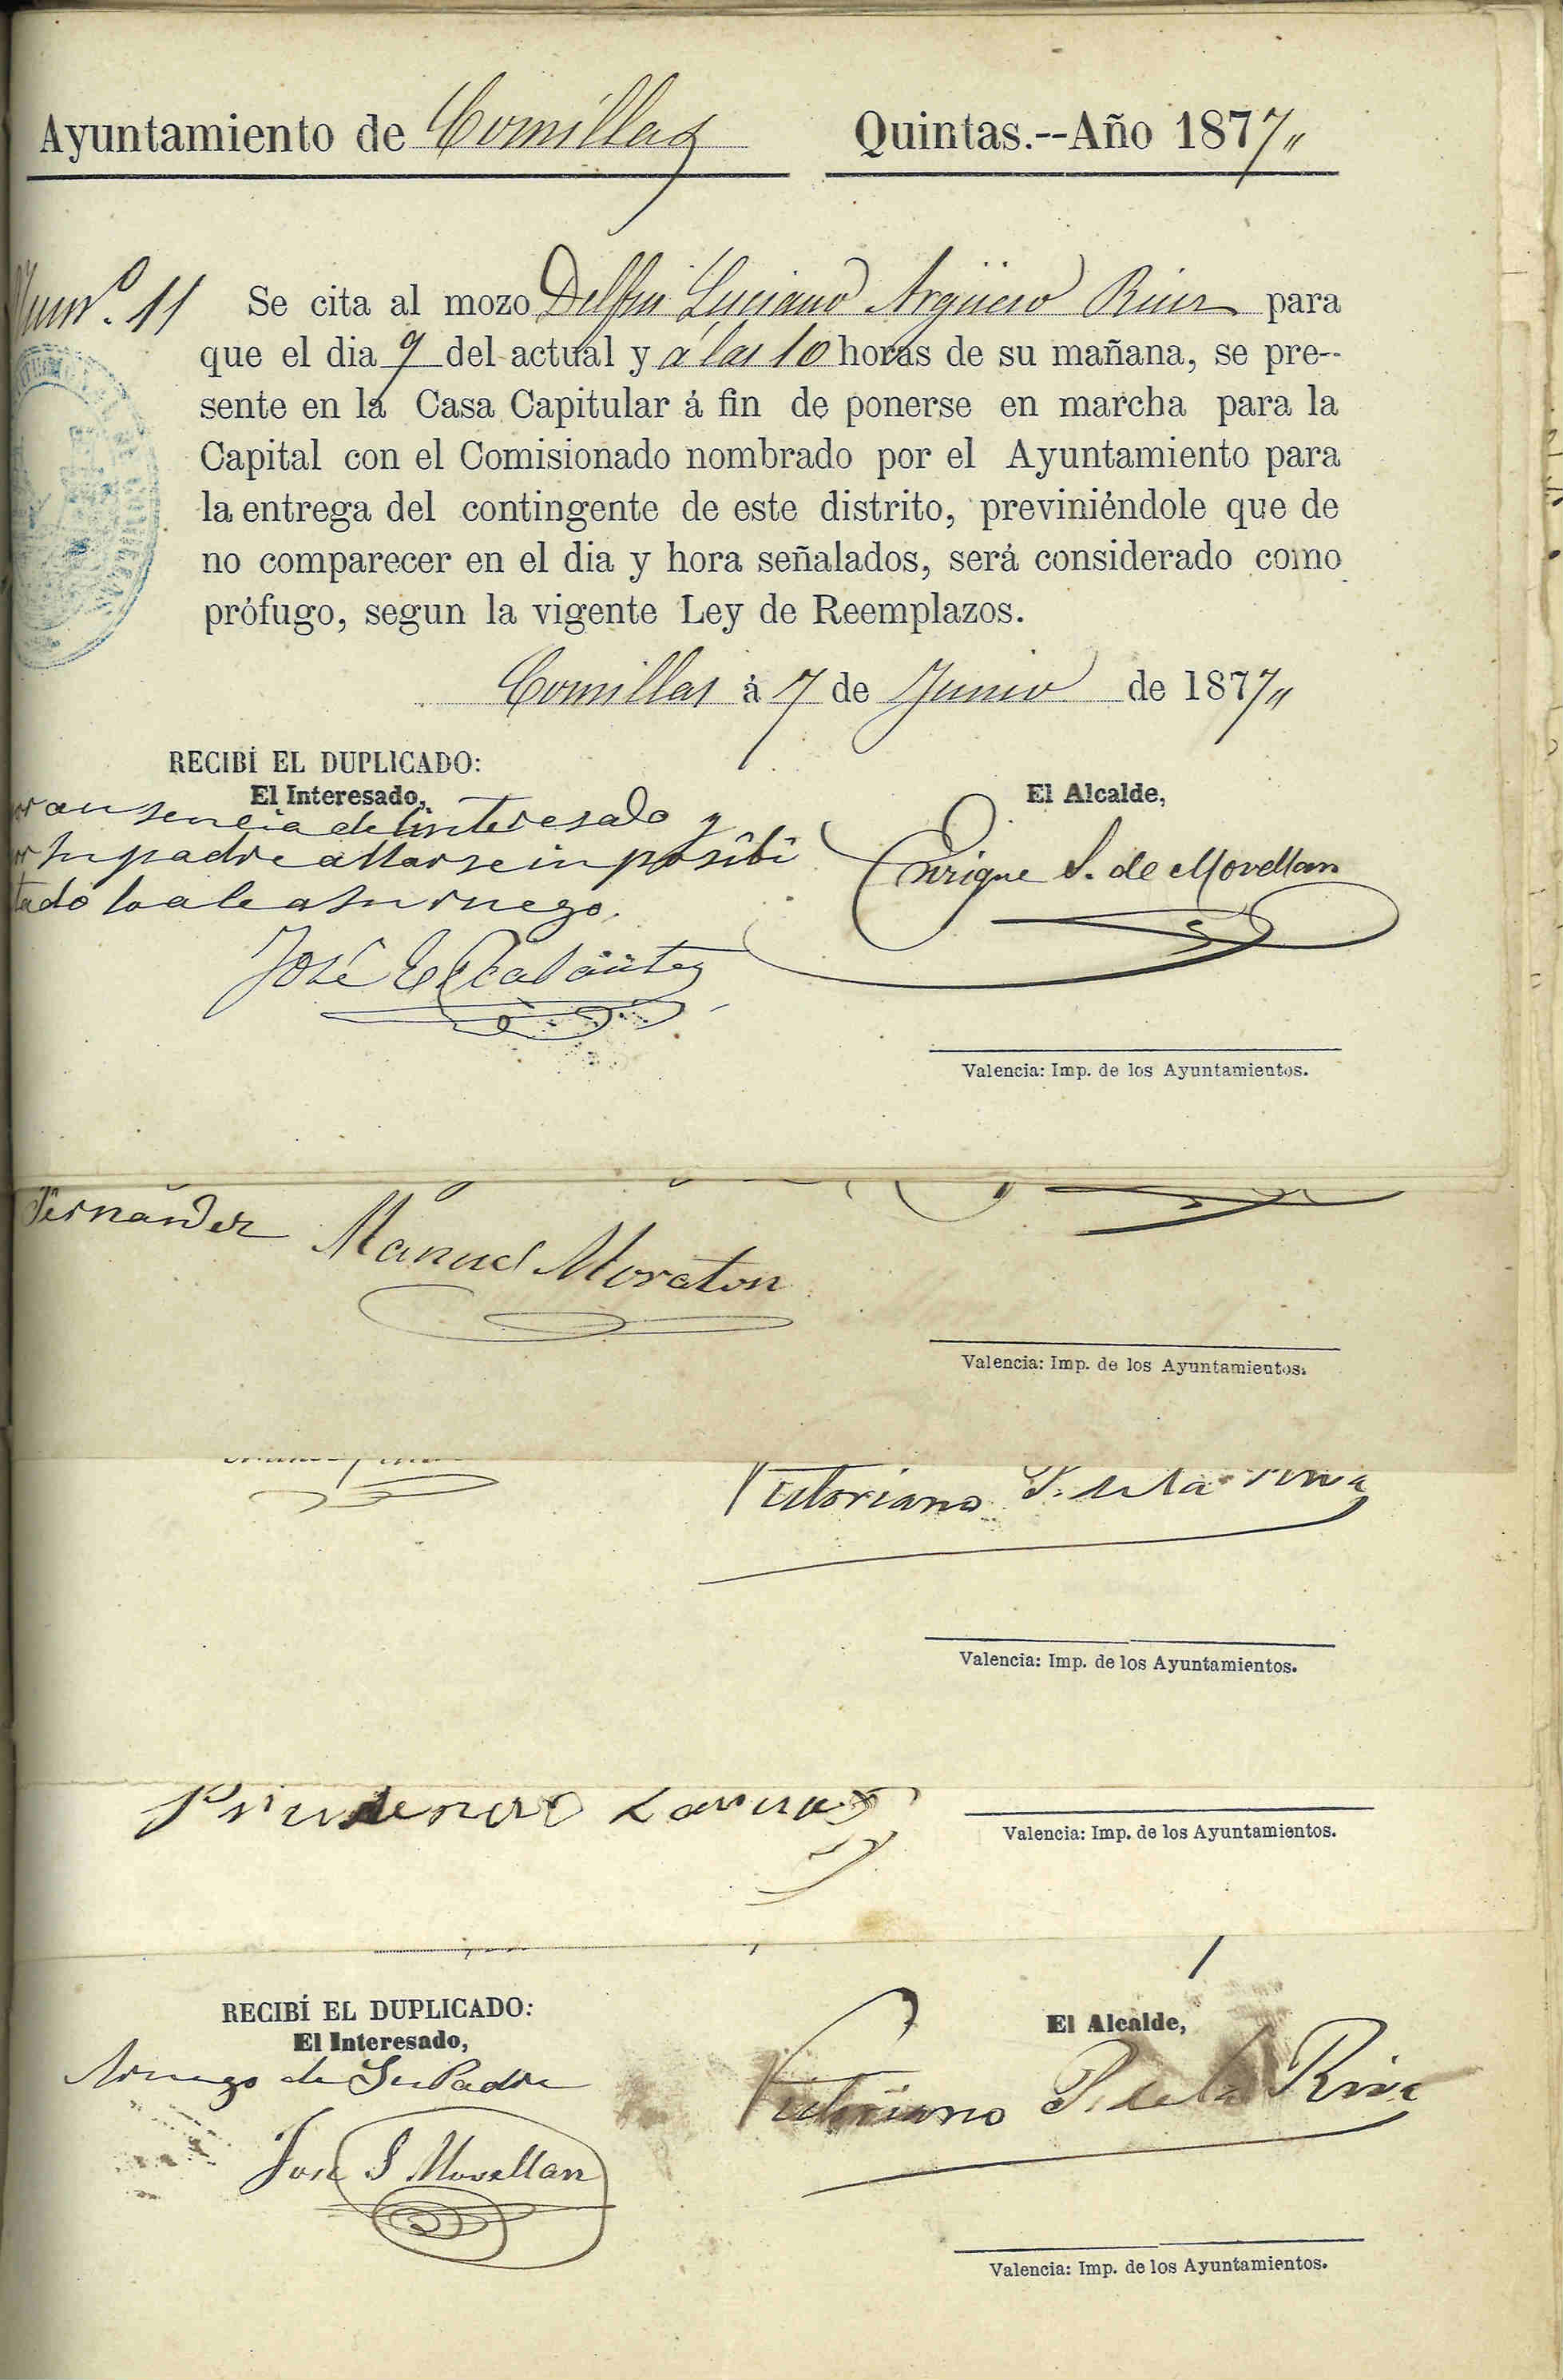 Ayuntamiento de Comillas Quintas.--Año 1877
Num.º 11 Se cita al mozo Delfin Luciano Argüeso Ruiz para
que el dia 9 del actual y á las 10 horas de su mañana, se pre--
sente en la Casa Capitular á fin de ponerse en marcha para la
Capital con el Comisionado nombrado por el Ayuntamiento para
la entrega del contingente de este distrito, previniéndole que de
no comparecer en el dia y hora señalados, será considerado como
prófugo, segun la vigente Ley de Reemplazos.
Comillas á 7 de Junio de 1877
RECIBÍ EL DUPLICADO:
El Interesado,
El Alcalde,
ausencia del interesado y
su padre allarse inposibi
tado lo ale a su ruego.
Enrique S. de Movellan
José
Valencia: Imp. de los Ayuntamientos.
Fernandez Manuel Moraton
Valencia: Imp. de los Ayuntamientos.
Victoriano P. de la Riva
Valencia: Imp. de los Ayuntamientos.
Prudencio
Valencia: Imp. de los Ayuntamientos.
RECIBÍ EL DUPLICADO:
El Interesado,
El Alcalde,
A ruego de Su Padre
Victoriano P. de la Riva
Jose S Movellan
Valencia: Imp. de los Ayuntamientos.